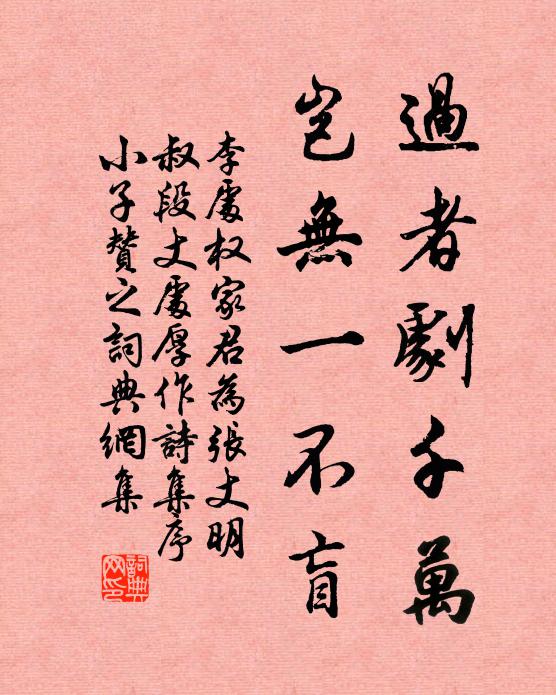 過者劇千萬
豈無一不盲
李處权家君為張丈明
叔段丈處厚作詩集序
小子贊之詞典網集
詞典网印